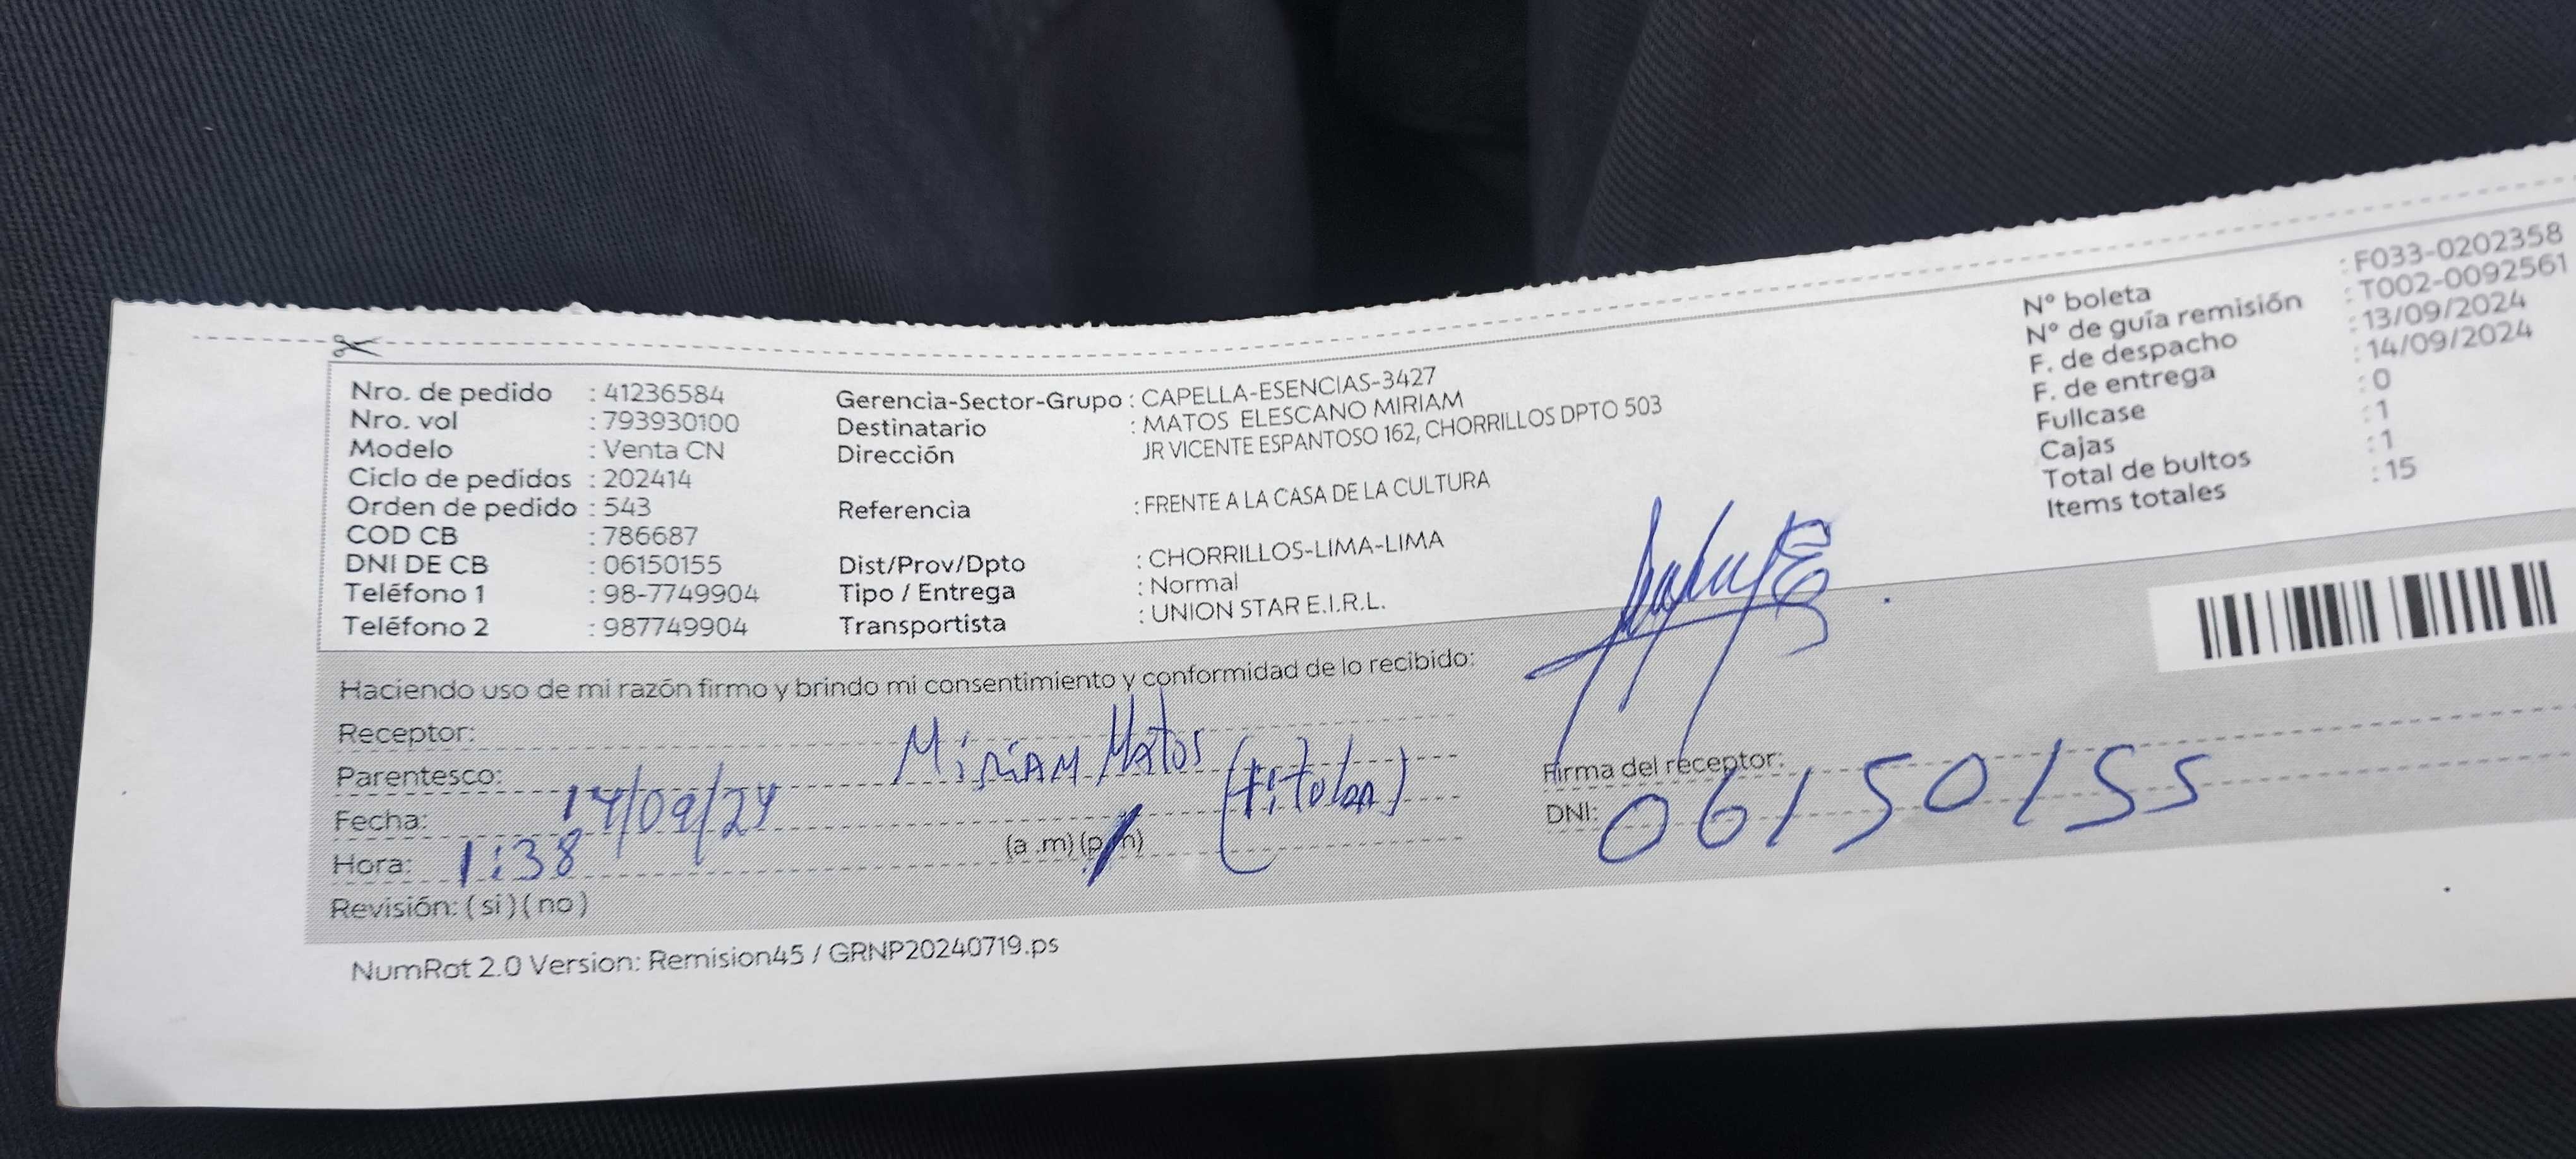 Nro. de pedido : 41236584
Nro. vol : 793930100
Modelo : Venta CN
Ciclo de pedidos : 202414
Orden de pedido : 543
COD CB : 786687
DNI DE CB : 06150155
Teléfono 1 : 98-7749904
Teléfono 2 : 987749904
Gerencia-Sector-Grupo : CAPELLA-ESENCIAS-3427
Destinatario : MATOS ELESCANO MIRIAM
Dirección JR VICENTE ESPANTOSO 162, CHORRILLOS DPTO 503
Referencia : FRENTE A LA CASA DE LA CULTURA
Dist/Prov/Dpto : CHORRILLOS-LIMA-LIMA
Tipo / Entrega : Normal
Transportista : UNION STAR E.I.R.L.
N° boleta : F033-0202358
N° de guía remisión : T002-0092561
F. de despacho : 13/09/2024
F. de entrega : 14/09/2024
Fullcase : 0
Cajas : 1
Total de bultos : 1
Items totales : 15
Haciendo uso de mi razón firmo y brindo mi consentimiento y conformidad de lo recibido:
Receptor: Miriam Matos
Parentesco: (titular)
Fecha: 14/09/24
Hora: 1:38 (a .m) (p.m)
Revisión: ( si ) ( no )
Firma del receptor:
DNI: 06150155
NumRot 2.0 Version: Remision45 / GRNP20240719.ps